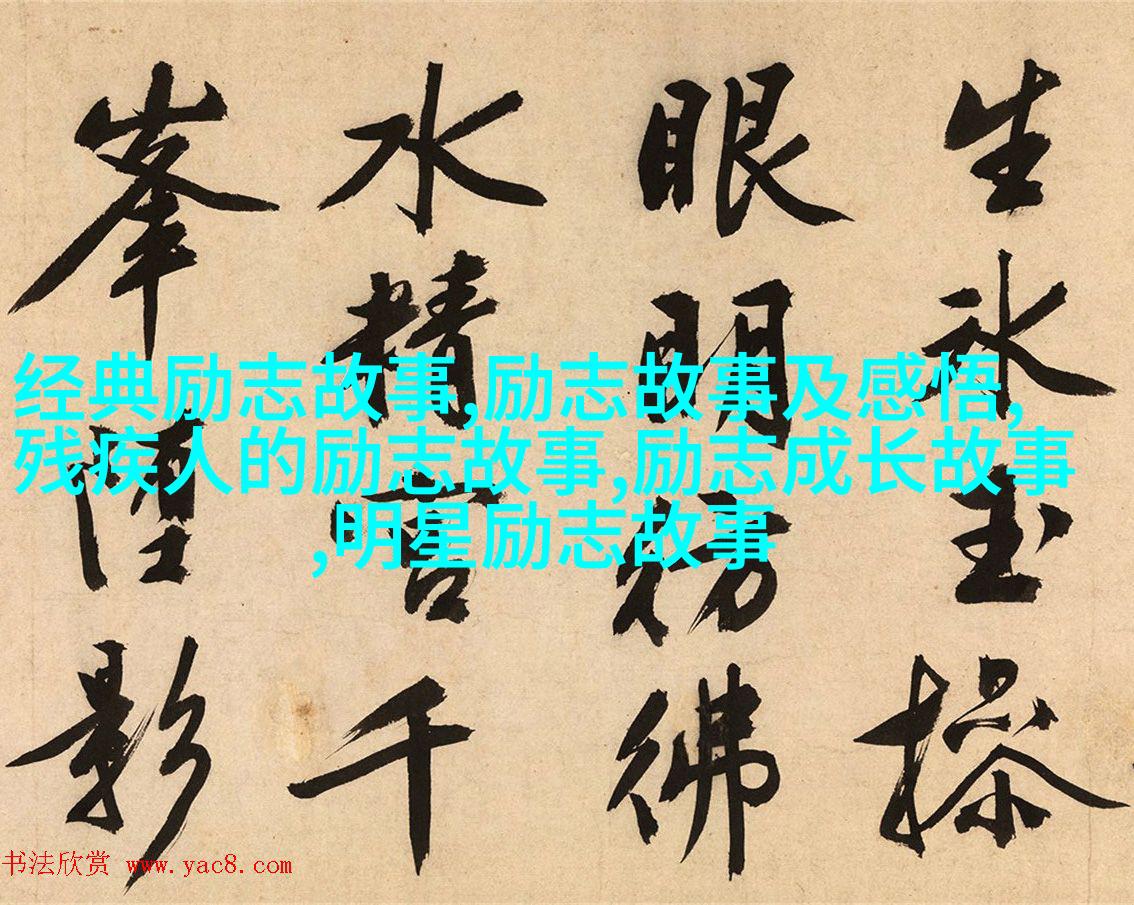 生氷玉操
眼明彷彿
水精宮千
峯墮影
经典励志故事,励志故事及感悟,
残疾人的励志故事,励志成长故事
,明星励志故事
书法欣赏 www.yac8.com